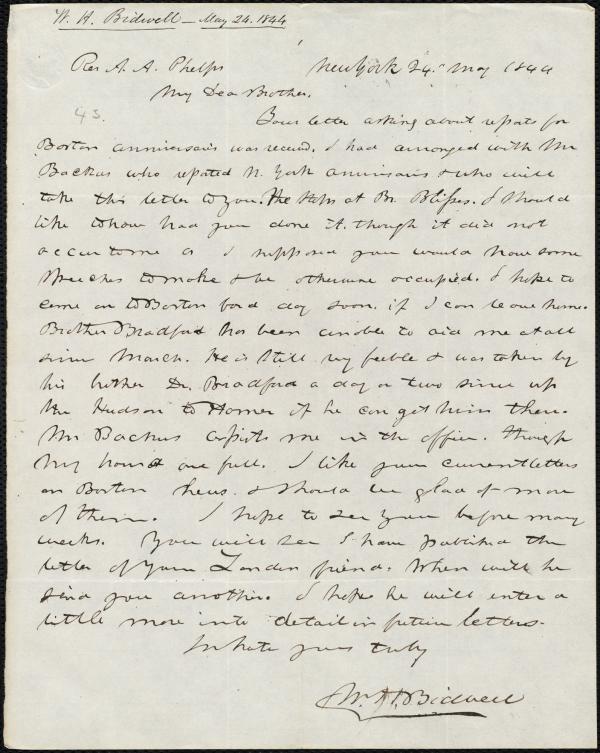 W. H. Bidwell – May 24. 1844
Rev A. A. Phelps New York 24. May 1844
My Dear Brother.
43
Your letter asking about reports for
Boston anniversaries was received. I had arranged with Mr
Backus who reported N. York anniversaries & who will
take this letter to you. He stops at Br. Blisses. I should
like to have had you done it. though it did not
occur to me as I supposed you would have some
speeches to make & be otherwise occupied. I hope to
come on to Boston day soon. if I can leave home.
Brother Bradford has been unable to aid me at all
since March. He is still very feeble & was taken by
his brother Dr. Bradford a day or two since up
the Hudson to Homer if he can get him there.
Mr Backus assists me in the office. though
My hands are full. I like your current letters
on Boston & should be glad of more
of them. I hope to see you before many
weeks. You will see I have published the
letter of your London friend. When will he
send you another. I hope he will enter a
little more into detail in future letters.
In haste yours truly
Wm. H. Bidwell